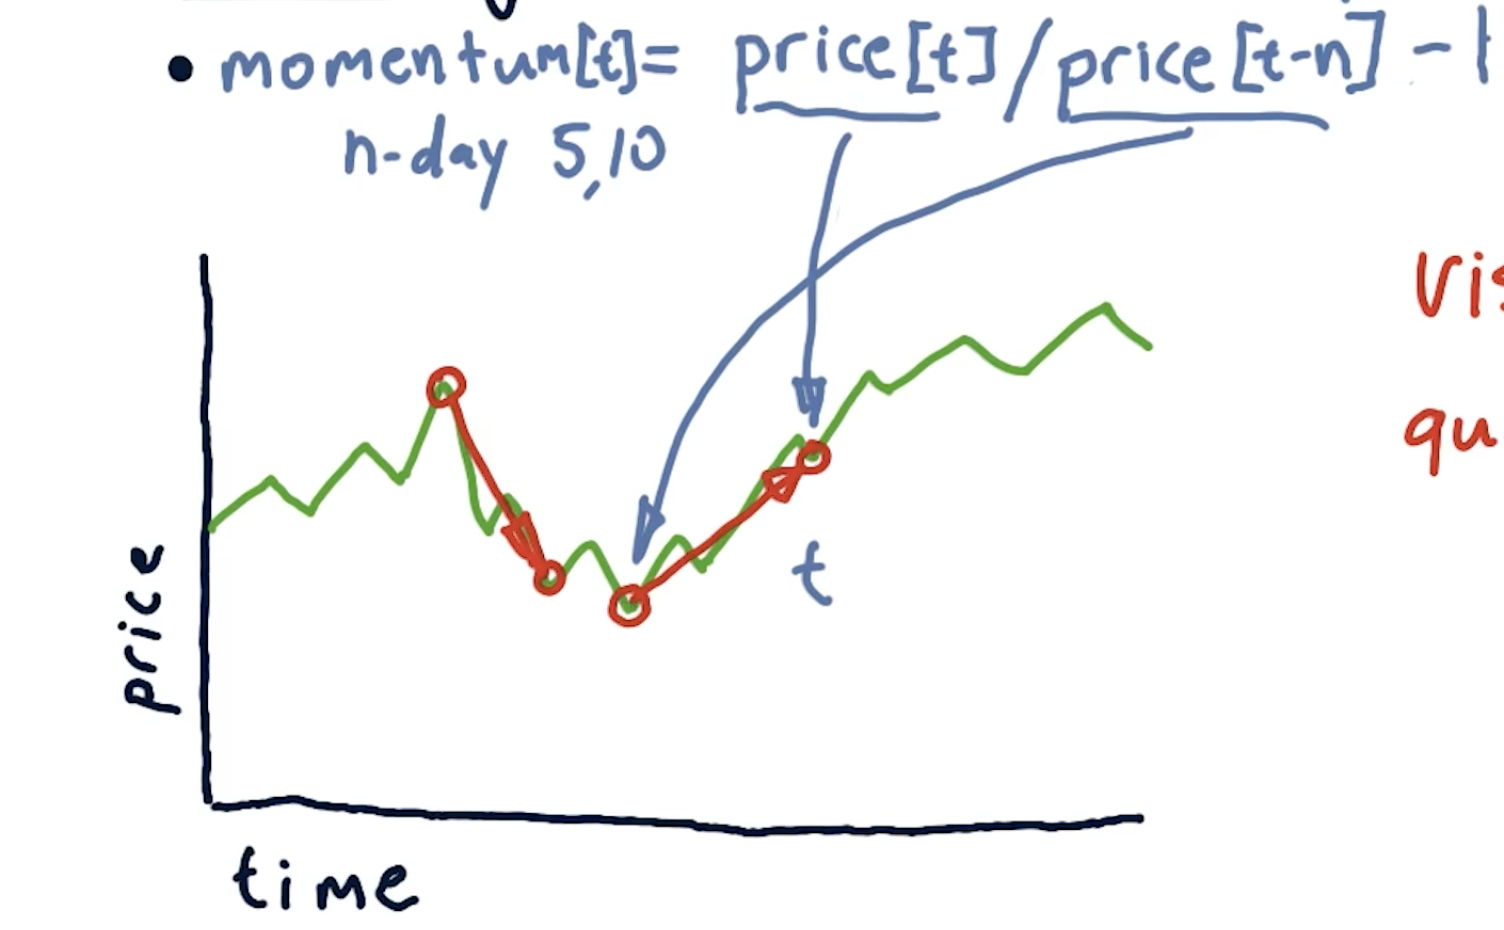 • momentum[t]= price[t]/price[t-n] - 1
n-day 5,10
t
price
time